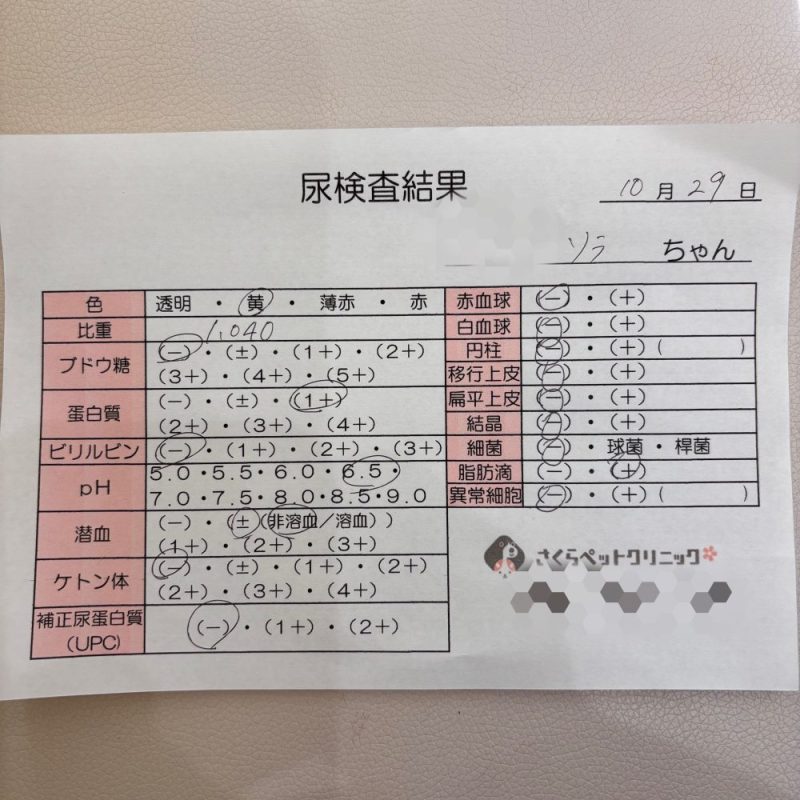 尿検査結果
10月29日
ソラ ちゃん
色 透明 ・ 黄 ・ 薄赤 ・ 赤
比重 1.040
ブドウ糖 (−)・(±)・(1+)・(2+)
(3+)・(4+)・(5+)
蛋白質 (−)・(±)・(1+)
(2+)・(3+)・(4+)
ビリルビン (−)・(1+)・(2+)・(3+)
pH 5.0・5.5・6.0・6.5・
7.0・7.5・8.0・8.5・9.0
潜血 (−)・(±(非溶血/溶血))
(1+)・(2+)・(3+)
ケトン体 (−)・(±)・(1+)・(2+)
(2+)・(3+)・(4+)
補正尿蛋白質
(UPC) (−)・(1+)・(2+)
赤血球 (−)・(+)
白血球 (−)・(+)
円柱 (−)・(+)( )
移行上皮 (−)・(+)
扁平上皮 (−)・(+)
結晶 (−)・(+)
細菌 (−)・球菌・桿菌
脂肪滴 (−)・(+)
異常細胞 (−)・(+)( )
さくらペットクリニック